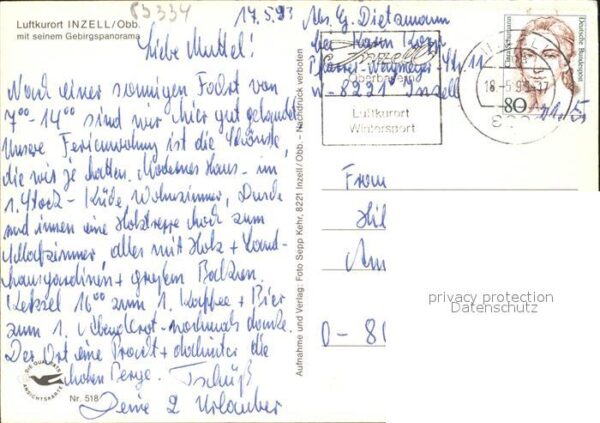 83334
Luftkurort INZELL/Obb.
mit seinem Gebirgspanorama
17.5.93
Liebe Muttel!
Nach einer sonnigen Fahrt von
7⁰⁰-14⁰⁰ sind wir hier gut gelandet
Unsere Ferienwohnung ist die Schönste,
die wir je hatten. Modernes Haus - im
1. Stock - Küche, Wohnzimmer, Dusche
und innen eine Holztreppe hoch zum
Schlafzimmer, alles mit Holz + Land-
hausgardinen + großem Balkon.
16⁰⁰ zum 1. Kaffee + Bier
zum 1. Abendbrot - nochmals danke.
Der Ort eine Pracht + dahinter die
hohen Berge. Tschüß
Deine 2 Urlauber
DIE QUALITÄTS
ANSICHTSKARTE
Nr. 518
Aufnahme und Verlag: Foto Sepp Kehr, 8221 Inzell/Obb. - Nachdruck verboten
Abs. G. Dietzmann
bei Karin
Pfarrer- Str. 11
W-8221 Inzell
Inzell
Oberbayern
Luftkurort
Wintersport
18.-5.93-17
Deutsche Bundespost
80
Frau
Hil
Am
O-80
privacy protection
Datenschutz